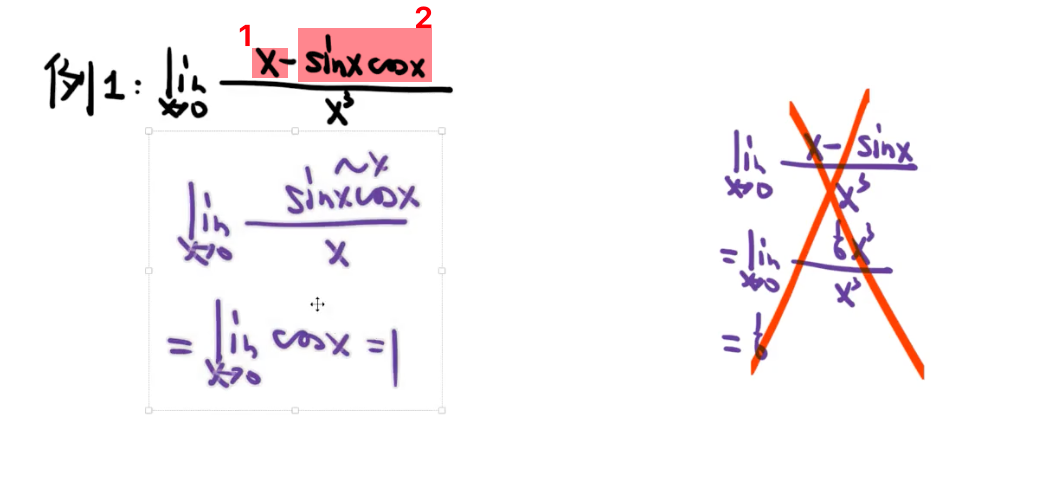 1 2
例1: lim x→0 (x - sinx cosx) / x³
lim x→0 (sinx cosx) / x ~x
= lim x→0 cosx = 1
lim x→0 (x - sinx) / x³
= lim x→0 (1/6 x³) / x³
= 1/6